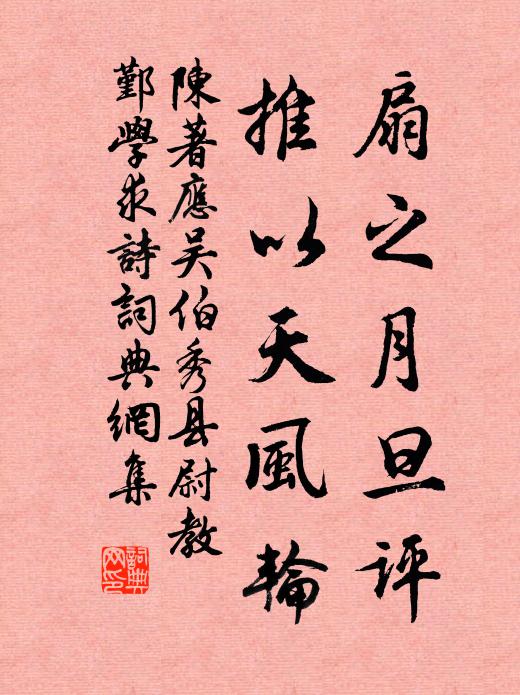 扇之月旦評
推以天風輪
陳著應吴伯秀县尉教
鄞學求詩詞典網集
詞典网印